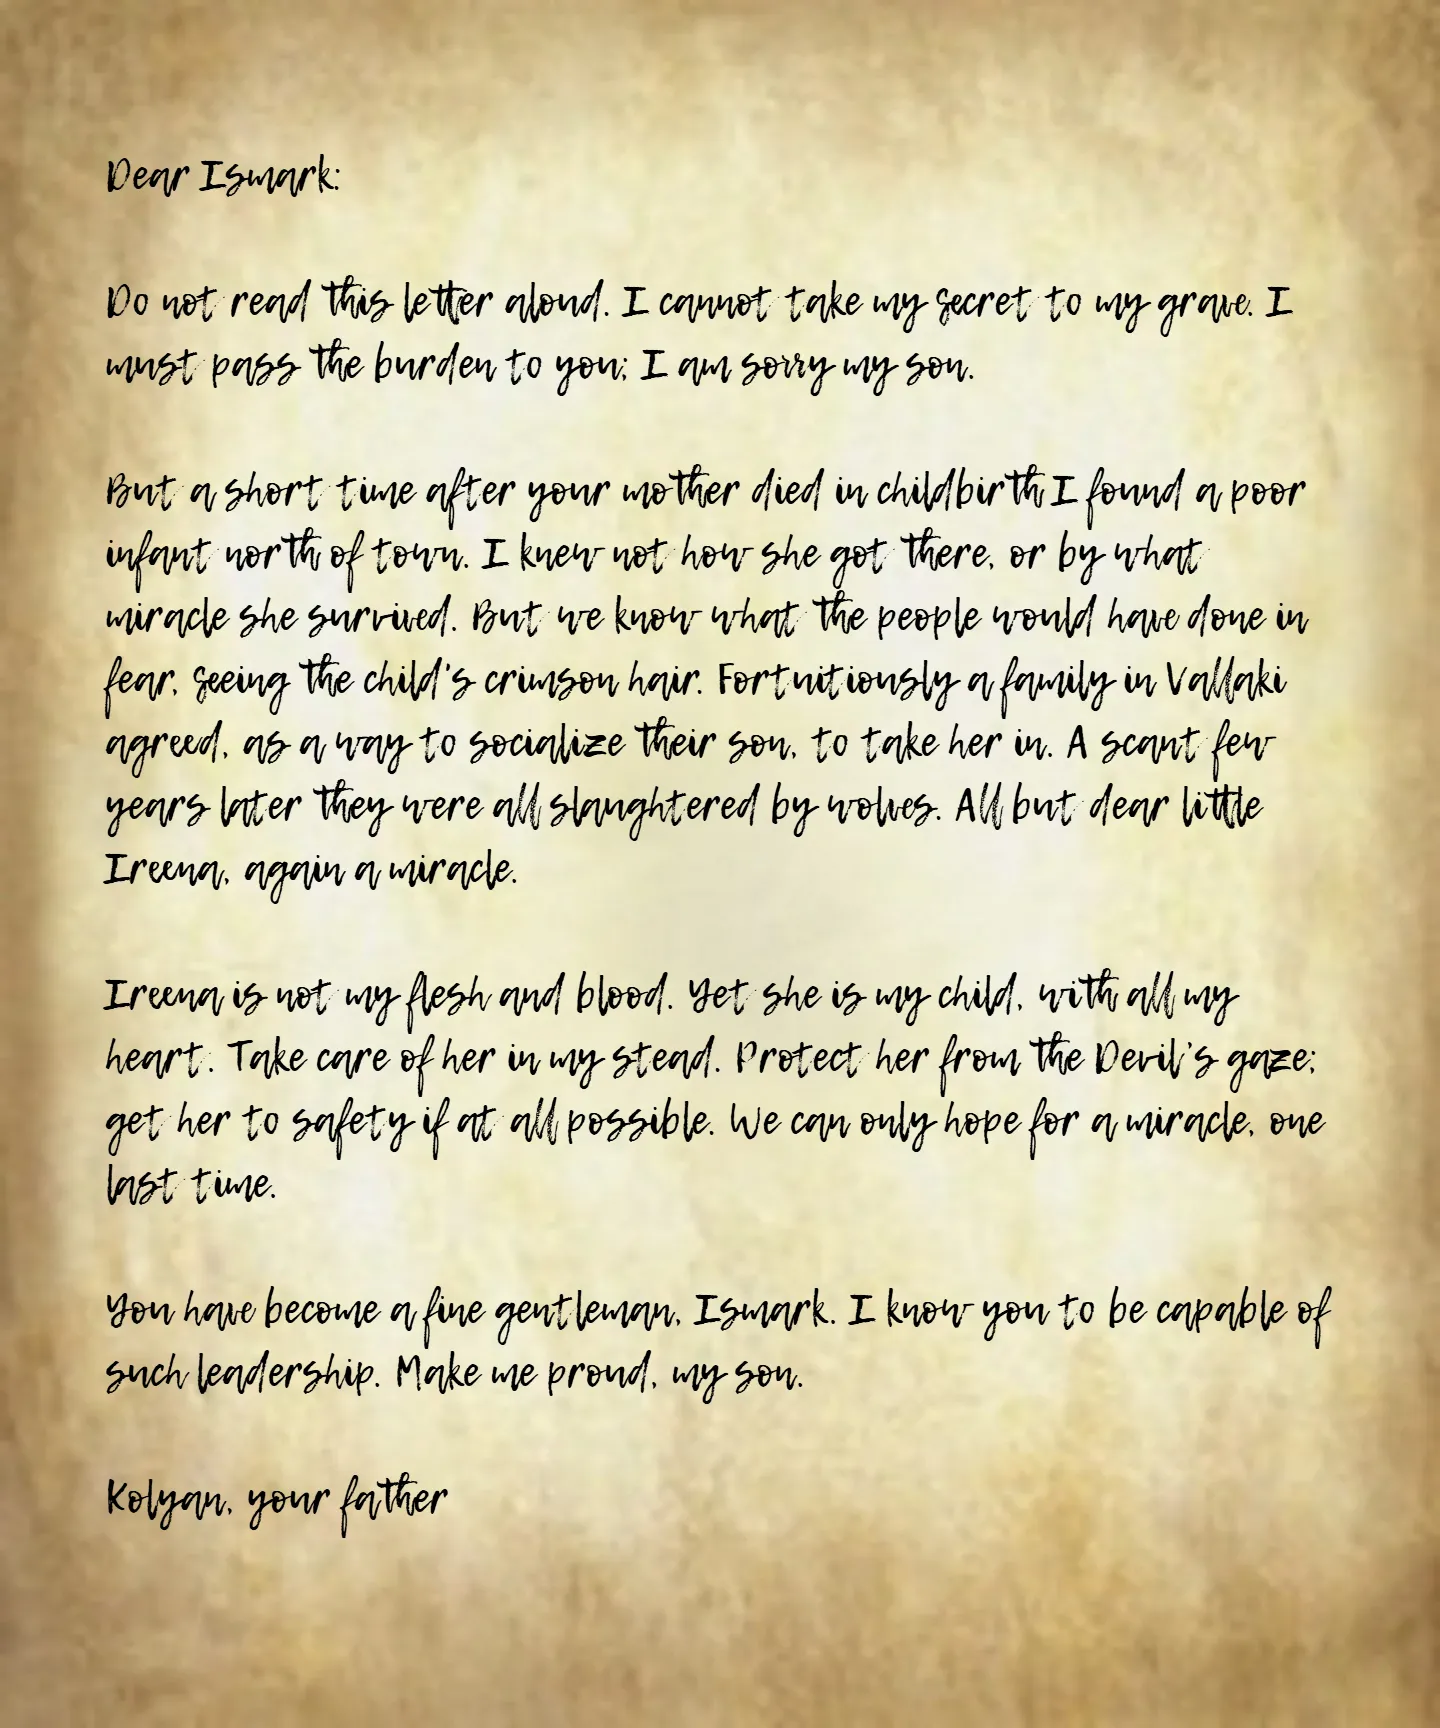 Dear Ismark:
Do not read this letter aloud. I cannot take my secret to my grave. I
must pass the burden to you; I am sorry my son.
But a short time after your mother died in childbirth I found a poor
infant north of town. I knew not how she got there, or by what
miracle she survived. But we know what the people would have done in
fear, seeing the child's crimson hair. Fortuitiously a family in Vallaki
agreed, as a way to socialize their son, to take her in. A scant few
years later they were all slaughtered by wolves. All but dear little
Ireena, again a miracle.
Ireena is not my flesh and blood. Yet she is my child, with all my
heart. Take care of her in my stead. Protect her from the Devil's gaze;
get her to safety if at all possible. We can only hope for a miracle, one
last time.
You have become a fine gentleman, Ismark. I know you to be capable of
such leadership. Make me proud, my son.
Kolyan, your father